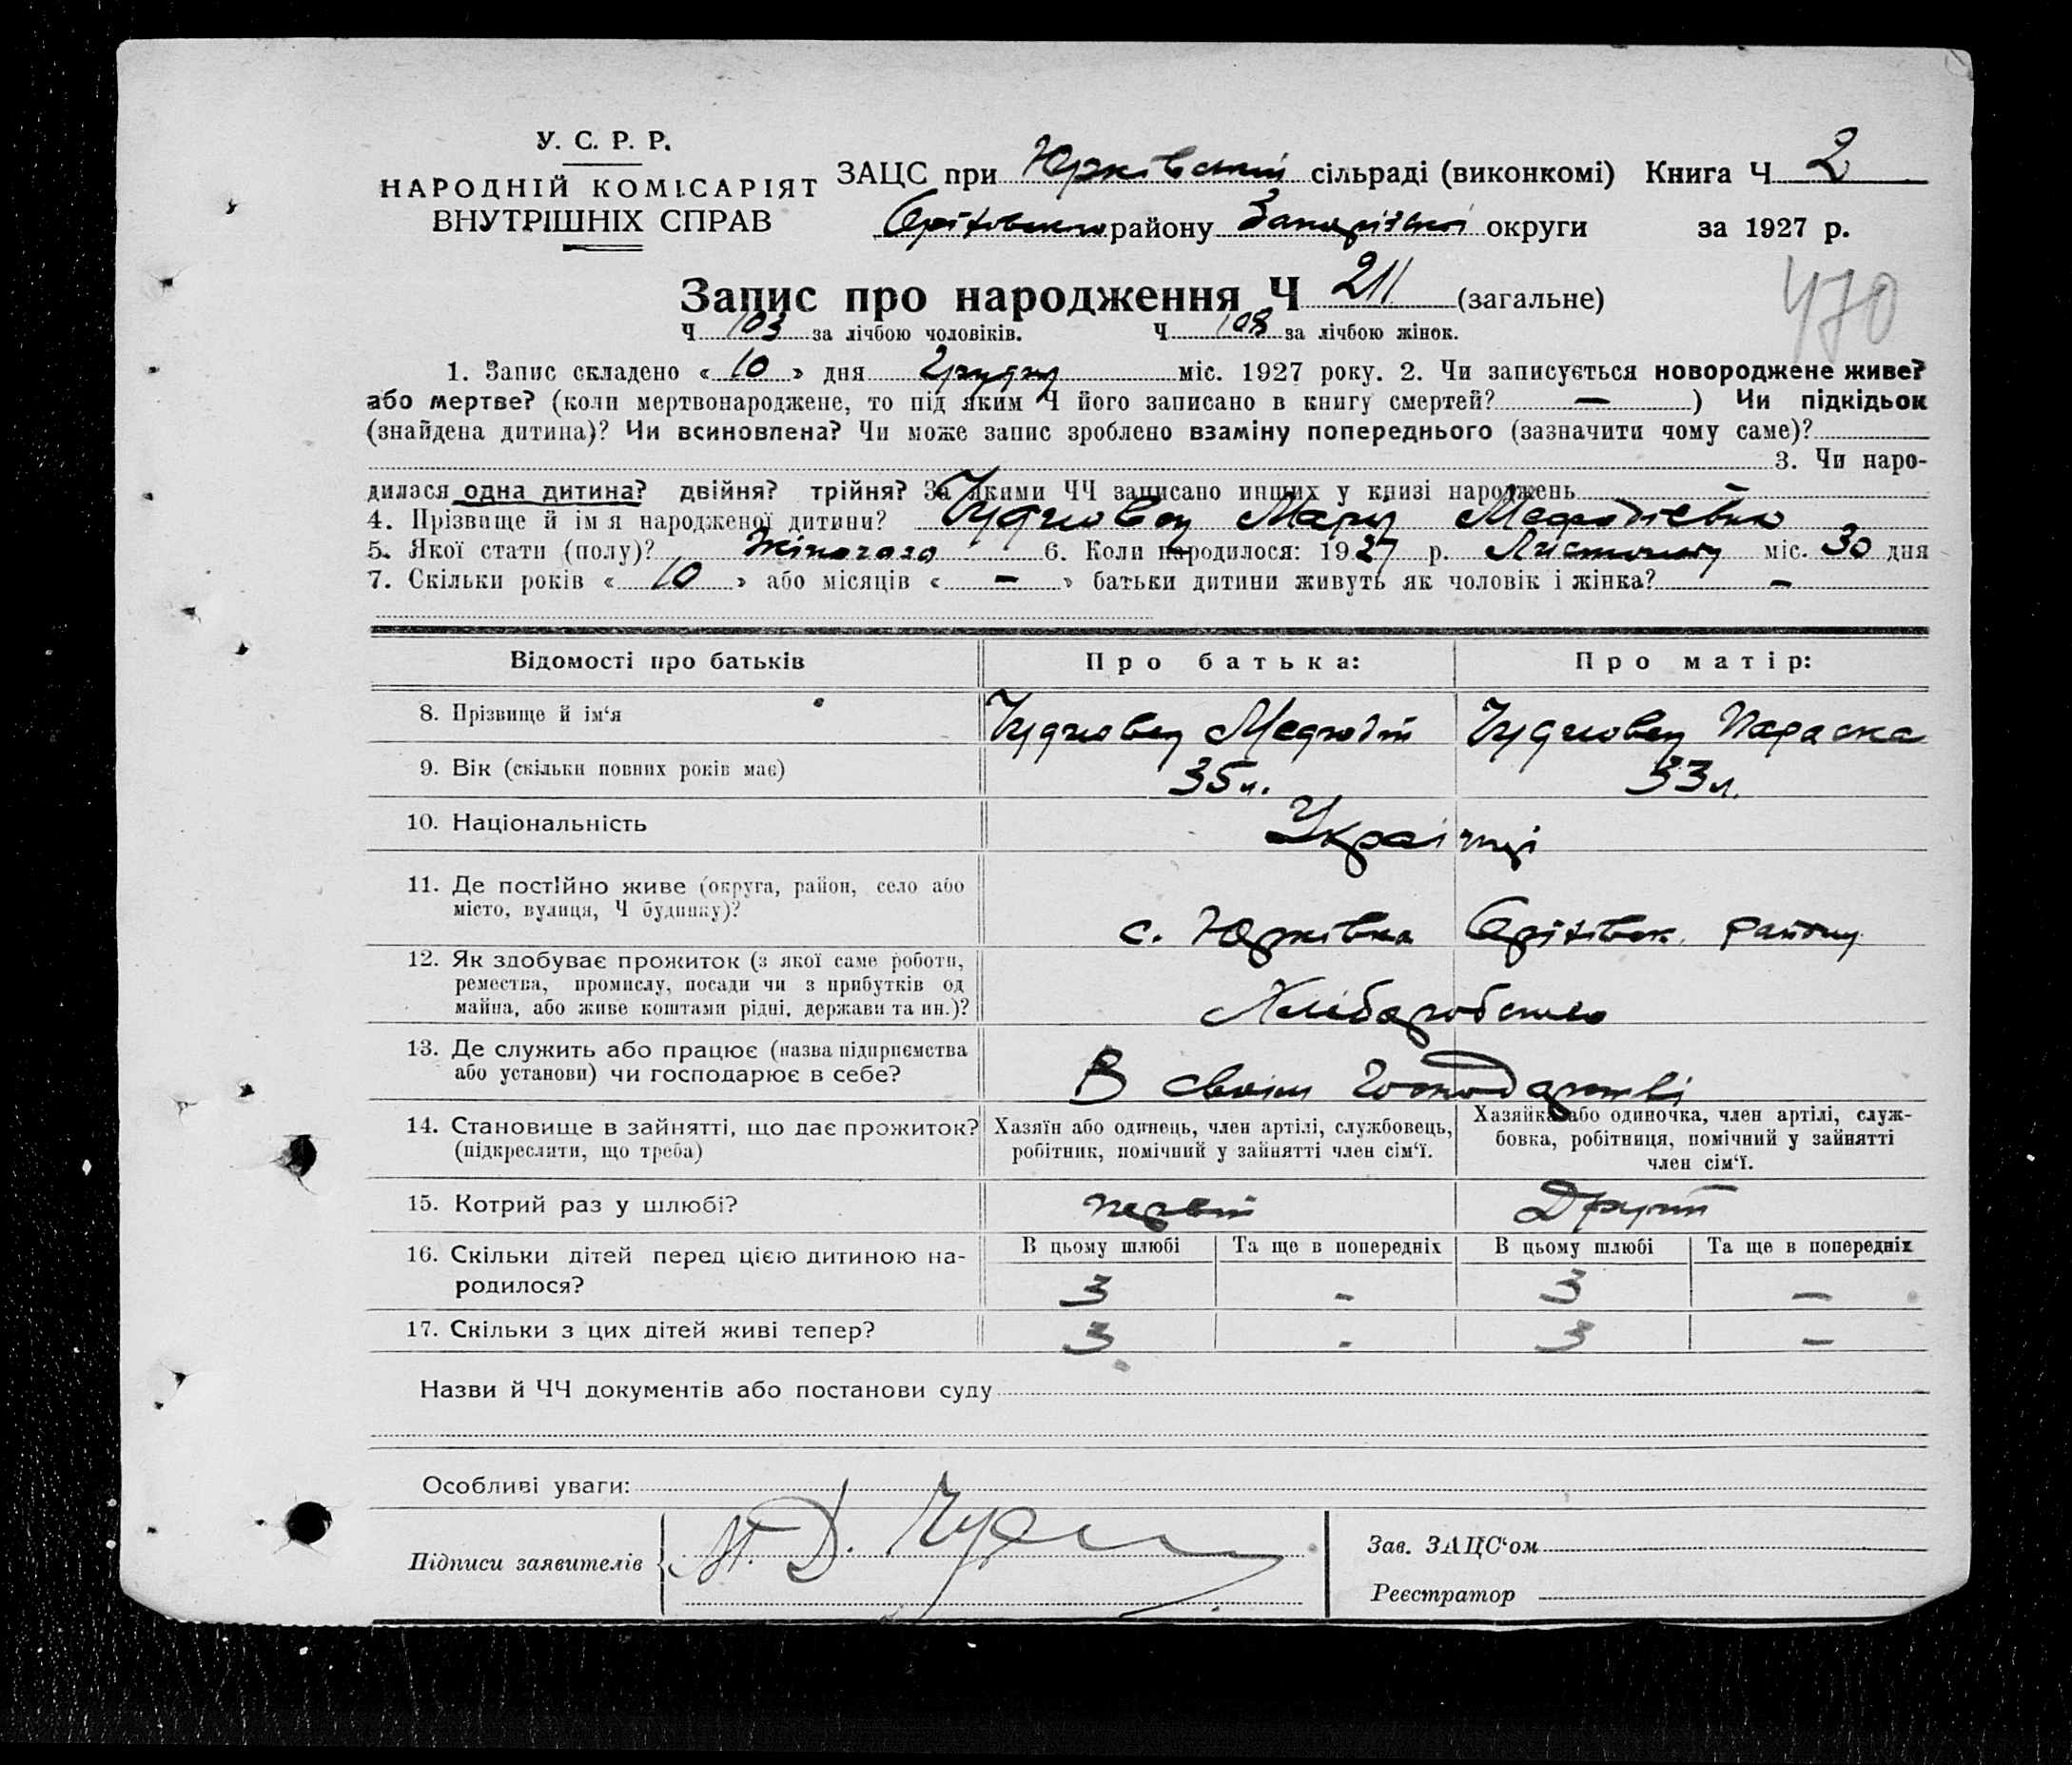 У. С. Р. Р.
НАРОДНІЙ КОМІСАРІЯТ
ВНУТРІШНІХ СПРАВ
ЗАЦС при Юрківській сільраді (виконкомі) Книга Ч 2
Оріховського району Запорізької округи за 1927 р.
Запис про народження Ч 211 (загальне)
470
Ч 103 за лічбою чоловіків. Ч 108 за лічбою жінок.
1. Запис складено « 10 » дня Грудня міс. 1927 року. 2. Чи записується новороджене живе?
або мертве? (коли мертвонароджене, то під яким Ч його записано в книгу смертей? — ) Чи підкідьок
(знайдена дитина)? Чи всиновлена? Чи може запис зроблено взаміну попереднього (зазначити чому саме)?
3. Чи наро-
дилася одна дитина? двійня? трійня? За якими ЧЧ записано инших у книзі народжень –
4. Прізвище й ім я народженої дитини? Чудновец Мария Мефодіевна
5. Якої стати (полу)? Жіночого 6. Коли народилося: 1927 р. Листопаду міс. 30 дня
7. Скільки років « 10 » або місяців « – » батьки дитини живуть як чоловік і жінка? –
Відомості про батьків
Про батька:
Про матір:
8. Прізвище й ім‘я
Чудновец Мефодій
Чудновец Параска
9. Вік (скільки повних років має)
35 л.
33 л.
10. Національність
Українці
11. Де постійно живе (округа, район, село або
місто, вулиця, Ч будинку)?
с. Юрківка Оріхівськ. району
12. Як здобуває прожиток (з якої саме роботи,
ремества, промислу, посади чи з прибутків од
майна, або живе коштами рідні, держави та ин.)?
Хліборобство
13. Де служить або працює (назва підприємства
або установи) чи господарює в себе?
В своїм господарстві
14. Становище в зайнятті, що дає прожиток?
(підкреслити, що треба)
Хазяїн або одинець, член артілі, службовець,
робітник, помічний у зайнятті член сім‘ї.
Хазяйка або одиночка, член артілі, служ-
бовка, робітниця, помічний у зайнятті
член сім‘ї.
15. Котрий раз у шлюбі?
первий
Другий
16. Скільки дітей перед цією дитиною на-
родилося?
В цьому шлюбі Та ще в попередніх В цьому шлюбі Та ще в попередніх
3 – 3 –
17. Скільки з цих дітей живі тепер?
3 - 3 –
Назви й ЧЧ документів або постанови суду
Особливі уваги:
Підписи заявителів
Зав. ЗАЦС‘ом
Реєстратор